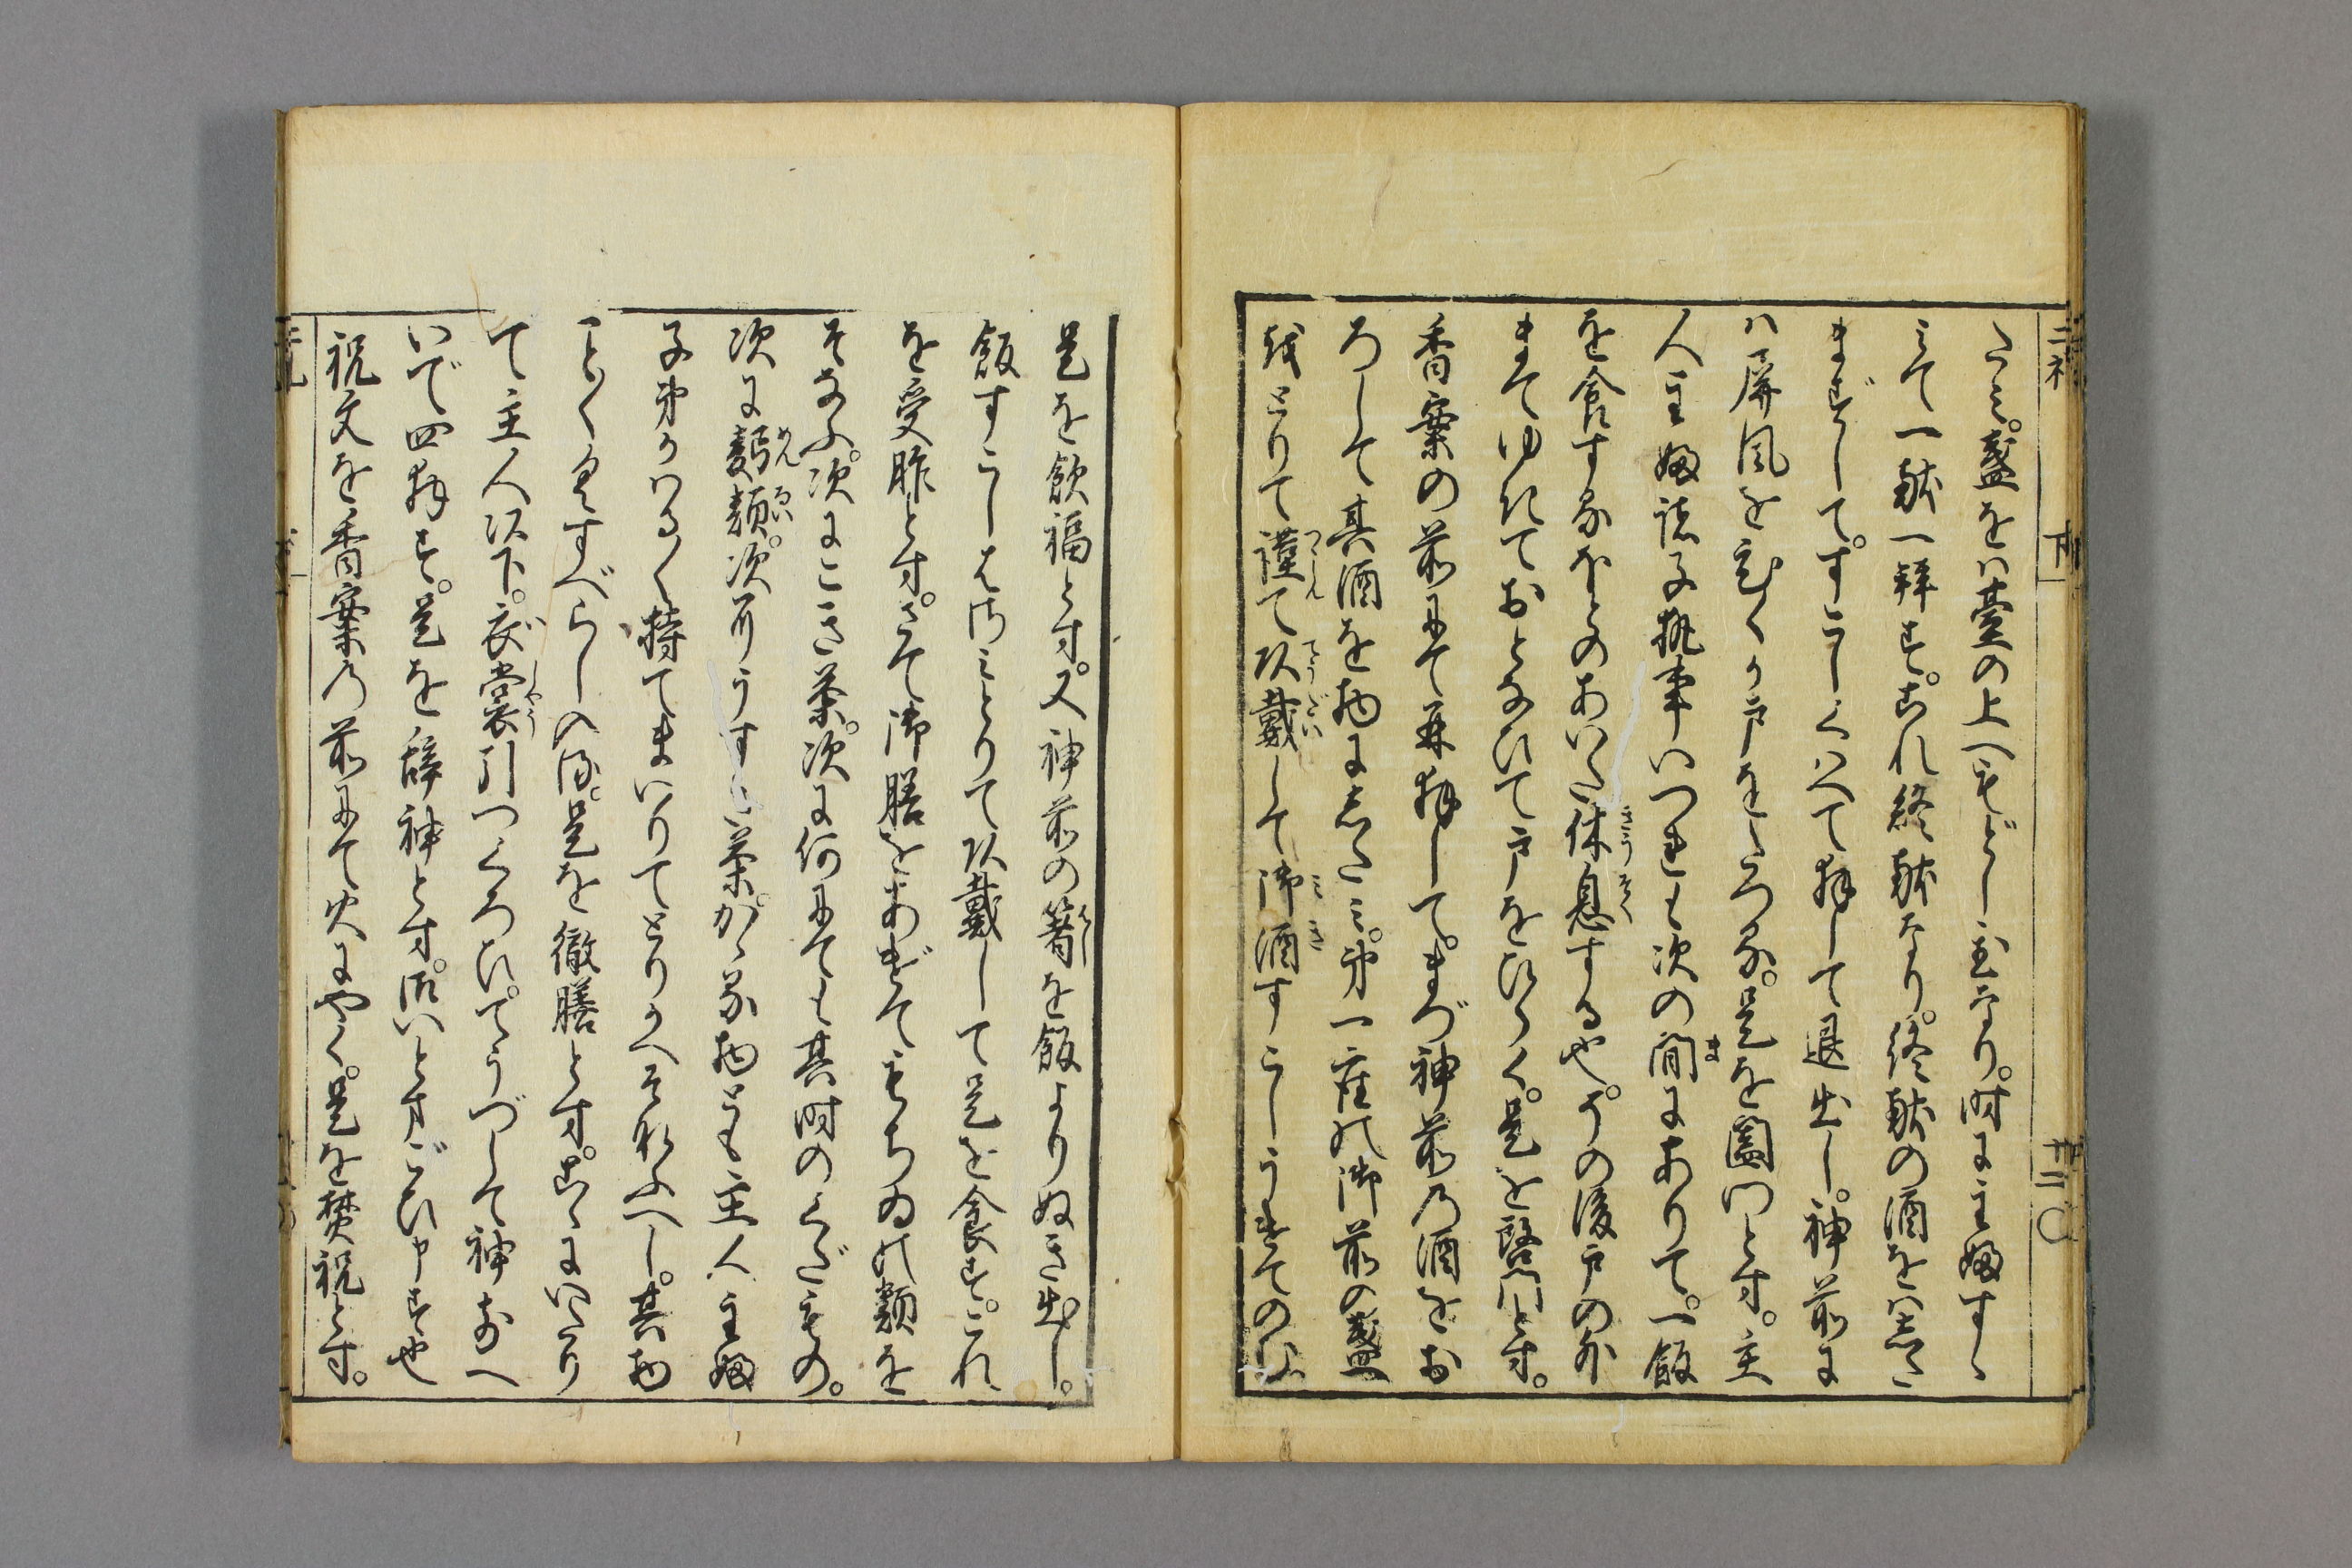 たみ。盞をハ臺の上へもどし玉なり。時に主婦すゝ
みて一献一拜す。これ終献なり。終献の酒をハした
まずして。すこしくハへて拜して退出し。神前に
ハ屏風を引く戸をたつる。是を闔門とす。主
人主婦諸子執事いつれも次の間にありて。一飯
を食するほとのあいた休息する也。その後戸の外
まてゆきておとなひて戸をひらく。是を啓門とす。
香案の前にて再拜して。まづ神前の酒をお
ろして其酒を物にしたみ。第一座の御前の盞
をとりて謹て頂戴して御酒すこしうけてのむ
是を飲福とす。又神前の箸を飯よりぬき出し。
飯すこしはさみとりて頂戴して是を食す。これ
を受胙とす。さて御膳をあげてもちゐの類を
そなふ。次にこき茶。次に何にても其時のくだもの。
次に麪類。次にうすき茶。かゝる物とも主人主婦
子弟かはる〳〵持てまいりてとりかへそなふへし。其物
こと〳〵くすべらし入る。是を徹膳とす。こゝにいたり
て主人以下。衣裳引つくろひ。てうづして神まへ
いで四拜す。是を辞神とす。御いとまごひ申す也
祝文を香案の前にて火にやく。是を焚祝とす。
二礼
下
廿二